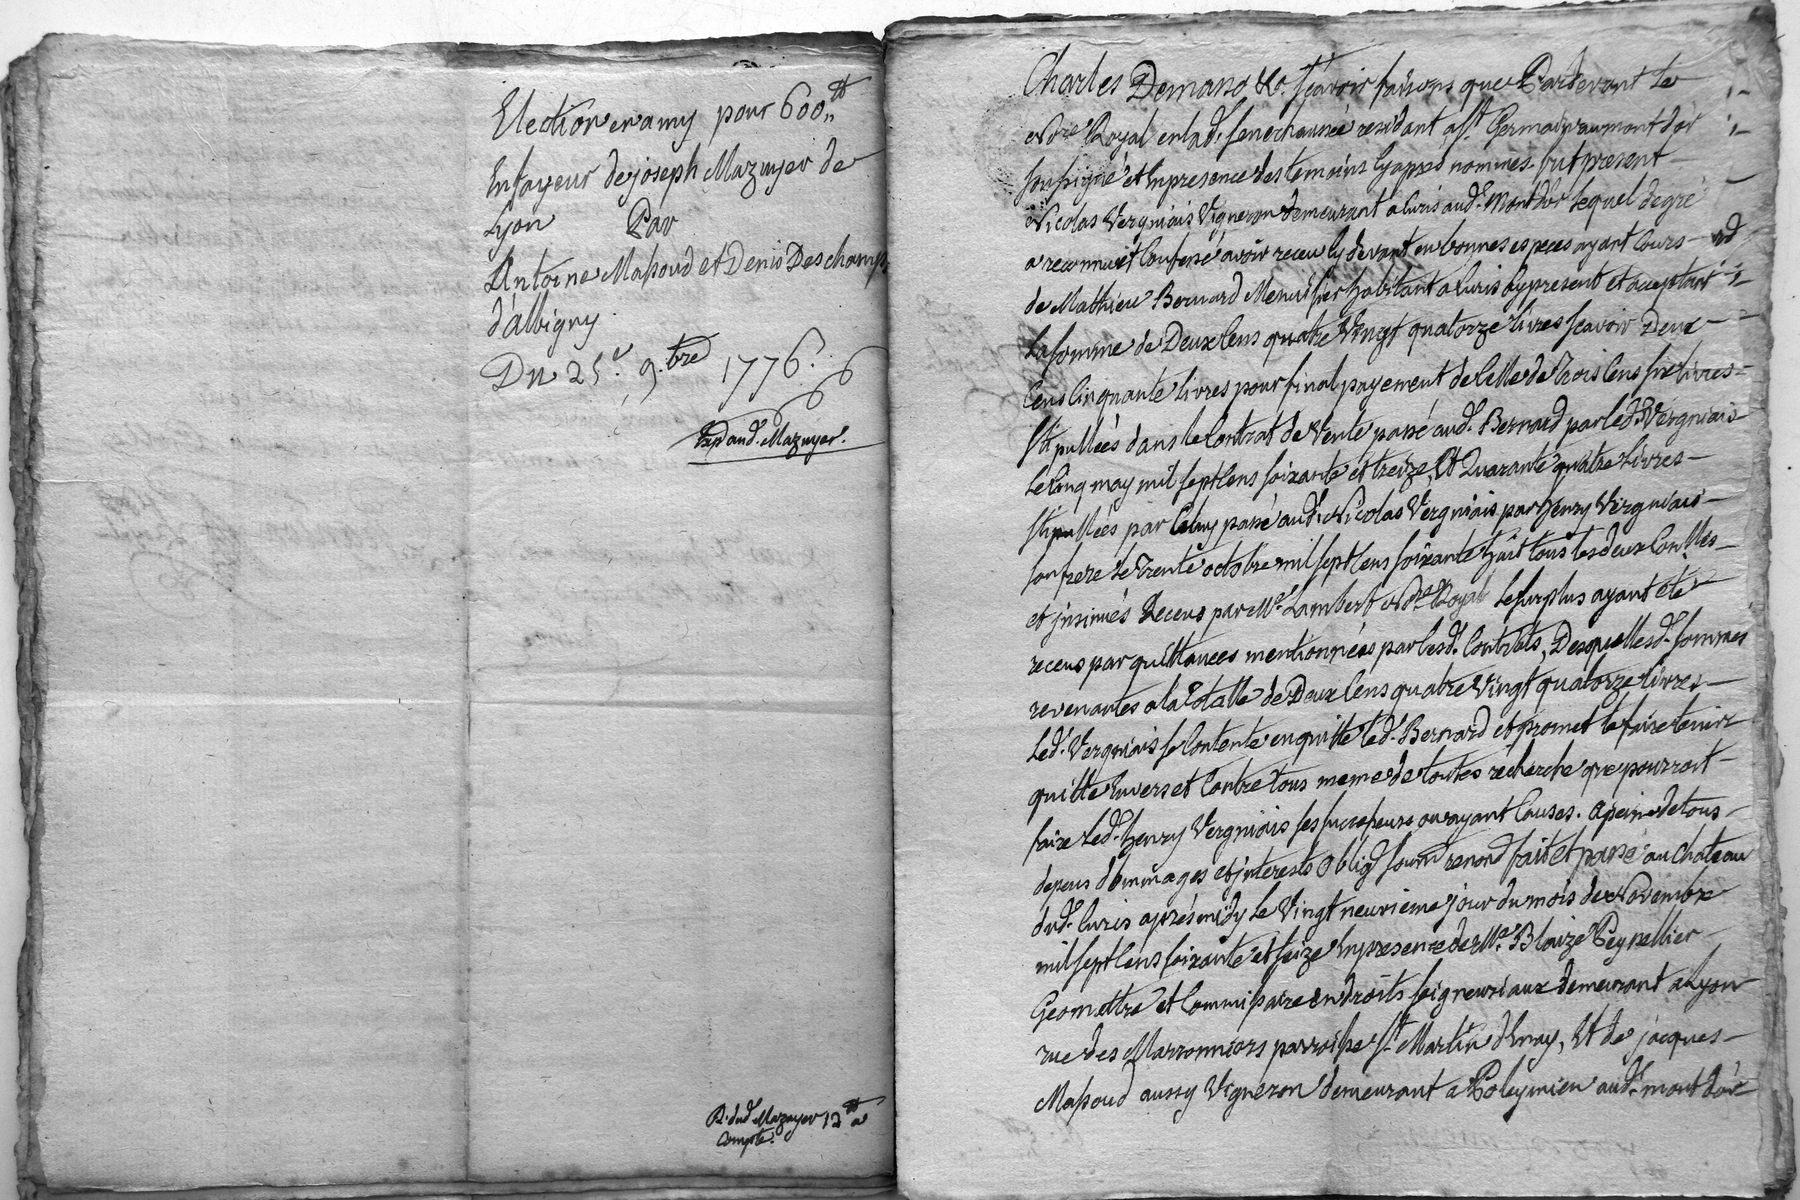 Election en amy pour 600 ₶
En faveur de joseph Mazuyer de
Lyon Par
Antoine Massoud et Denis Deschamps
d'albigny
Du 25e. 9.bre 1776.
Exp aud. Mazuyer.
R. dud. Mazuyer 12 ₶ a
compte.
Charles Demaso &c. sçavoir faisons que Pardevant le
Nore Royal en lad. senechaussée residant a St. Germain au mont d'or
soussigné et en presence des temoins cy apres nommés fut present
Nicolas Vergniais Vigneron demeurant a Curis aud. Mont d'or lequel de gré
a reconnu et confessé avoir receu cy devant en bonnes especes ayant cours
de Mathieu Bernard Menuisier habitant a Curis cy present et acceptant
la somme de Deux Cens quatre Vingt quatorze livres scavoir Deux
Cens Cinquante livres pour final payement de Celle de Trois Cens six livres
stipullées dans le Contrat de Vente passé aud. Bernard par led. Vergniais
le Cinq may mil sept Cens soixante et treize, Et Quarante quatre livres
stipullées par Celuy passé aud. Nicolas Vergniais par Henry Vergniais
son frere le Trente octobre mil sept Cens soixante huit tous les deux Conllés
et jnsinués Receus par Me. Lambert Nore Royal le surplus ayant été
receus par quittances mentionnées par lesd. Contrats, Desquelles d. sommes
revenantes a la Totalle de Deux Cens quatre Vingt quatorze livres
Led. Vergniais se Contente en quitte led. Bernard et promet le faire tenir
quitte Envers et Contre tous meme de toutes recherche que pourroit
faire led. henry Vergniais ses successeurs ou ayant Causes. a peine de tous
depens dommages et jnterests Oblig soum renon fait et passé au Chateau
dud. Curis aprés midy le Vingt neuvieme jour du mois de Novembre
mil sept Cens soixante et seize En presence de Me. Blaize Peysellier
Geomettre et Commissaire en droits seigneuriaux demeurant a Lyon
rue des Marronniers parroisse St. Martin d'Enay, Et de jacques
Massoud aussy Vigneron demeurant a Poleymieu aud. mont d'or